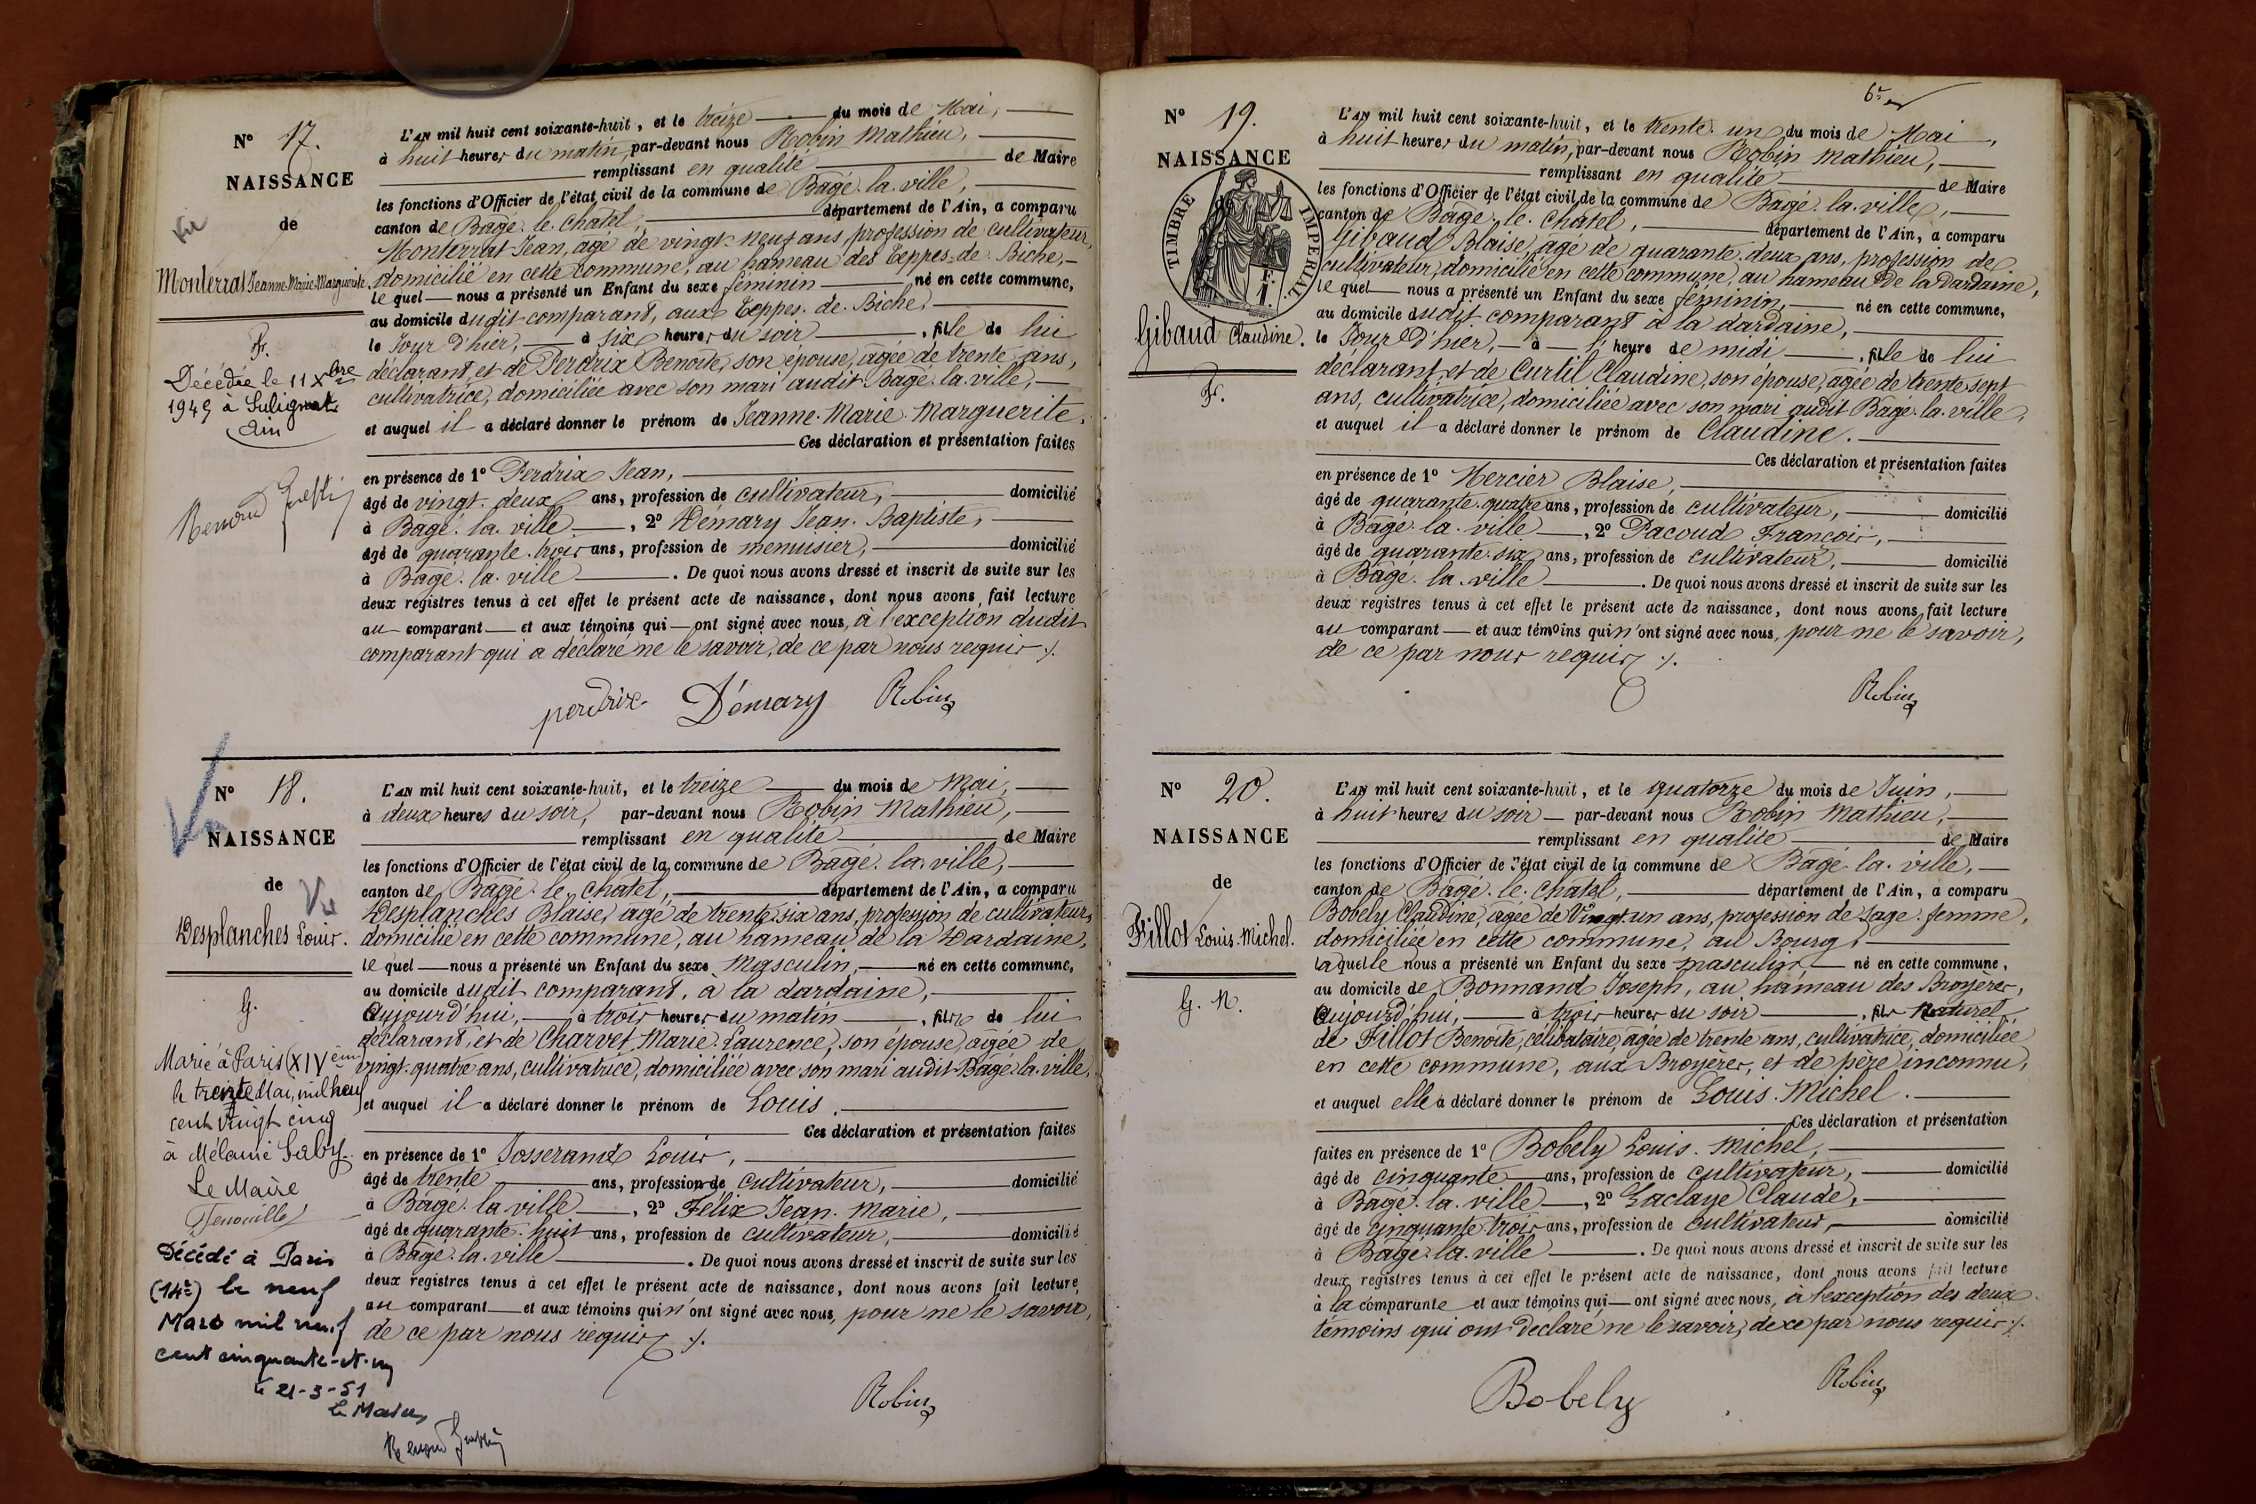 N° 17.
NAISSANCE
de
Vu
Monterrat Jeanne-Marie-Marguerite.
F.
Décédée le 11 Xbre
1949 à Sulignat
Ain
L'AN mil huit cent soixante-huit, et le treize du mois de Mai,
à huit heures du matin, par-devant nous Robin Mathieu,
remplissant en qualité de Maire
les fonctions d'Officier de l'état civil de la commune de Bâgé-la-ville,
canton de Bâgé-le-Chatel, département de l'Ain, a comparu
Monterrat Jean, âgé de vingt-neuf ans, profession de cultivateur,
domicilié en cette commune, au hameau des Teppes-de-Biche,
lequel nous a présenté un Enfant du sexe féminin né en cette commune,
au domicile dudit comparant, aux Teppes-de-Biche,
le Jour d'hier, à six heures du soir, fille de lui
déclarant, et de Perdrix Benoite, son épouse, âgée de trente ans,
cultivatrice, domiciliée avec son mari audit Bâgé-la-ville,
et auquel il a déclaré donner le prénom de Jeanne-Marie-Marguerite.
Ces déclaration et présentation faites
en présence de 1° Perdrix Jean,
âgé de vingt-deux ans, profession de cultivateur, domicilié
à Bâgé-la-ville, 2° Démary Jean-Baptiste,
âgé de quarante-trois ans, profession de menuisier, domicilié
à Bâgé-la-ville. De quoi nous avons dressé et inscrit de suite sur les
deux registres tenus à cet effet le présent acte de naissance, dont nous avons fait lecture
au comparant et aux témoins qui ont signé avec nous, à l'exception dudit
comparant qui a déclaré ne le savoir, de ce par nous requis ./.
perdrix Démary Robin
N° 18.
NAISSANCE
de
Vu
Desplanches Louis.
G.
Marié à Paris (XIVème)
le treize Mai, mil neuf
cent vingt cinq
à Mélanie
Le Maire
Décédé à Paris
(14e) le neuf
Mars mil neuf
cent cinquante-et-un
le 21-3-51
le Maire
L'AN mil huit cent soixante-huit, et le treize du mois de Mai,
à deux heures du soir, par-devant nous Robin Mathieu,
remplissant en qualité de Maire
les fonctions d'Officier de l'état civil de la commune de Bâgé-la-ville,
canton de Bâgé-le-Chatel, département de l'Ain, a comparu
Desplanches Blaise, âgé de trente-six ans, profession de cultivateur,
domicilié en cette commune, au hameau de la Dardaine,
lequel nous a présenté un Enfant du sexe Masculin, né en cette commune,
au domicile dudit comparant, à la dardaine,
Aujourd'hui, à trois heures du matin, fils de lui
déclarant, et de Charvet Marie-Laurence, son épouse, âgée de
vingt-quatre ans, cultivatrice, domiciliée avec son mari audit Bâgé-la-ville,
et auquel il a déclaré donner le prénom de Louis.
Ces déclaration et présentation faites
en présence de 1° Josserand Louis,
âgé de trente ans, profession de cultivateur, domicilié
à Bâgé-la-ville, 2° Félix Jean-Marie,
âgé de quarante-huit ans, profession de cultivateur, domicilié
à Bâgé-la-ville. De quoi nous avons dressé et inscrit de suite sur les
deux registres tenus à cet effet le présent acte de naissance, dont nous avons fait lecture
au comparant et aux témoins qui n'ont signé avec nous, pour ne le savoir,
de ce par nous requis ./.
Robin
N° 19.
NAISSANCE
TIMBRE IMPÉRIAL
Gibaud Claudine.
F.
L'AN mil huit cent soixante-huit, et le trente-un du mois de Mai,
à huit heures du matin, par-devant nous Robin Mathieu,
remplissant en qualité de Maire
les fonctions d'Officier de l'état civil de la commune de Bâgé-la-ville,
canton de Bâgé-le-Chatel, département de l'Ain, a comparu
Gibaud Blaise, âgé de quarante-deux ans, profession de
cultivateur, domicilié en cette commune, au hameau de la Dardaine,
lequel nous a présenté un Enfant du sexe féminin, né en cette commune,
au domicile dudit comparant à la dardaine,
le Jour d'hier, à l'heure de midi, fille de lui
déclarant, et de Curtil Claudine, son épouse, âgée de trente-sept
ans, cultivatrice, domiciliée avec son mari audit Bâgé-la-ville,
et auquel il a déclaré donner le prénom de Claudine.
Ces déclaration et présentation faites
en présence de 1° Mercier Blaise,
âgé de quarante-quatre ans, profession de cultivateur, domicilié
à Bâgé-la-ville, 2° Pacoud François,
âgé de quarante-six ans, profession de cultivateur, domicilié
à Bâgé-la-ville. De quoi nous avons dressé et inscrit de suite sur les
deux registres tenus à cet effet le présent acte de naissance, dont nous avons fait lecture
au comparant et aux témoins qui n'ont signé avec nous, pour ne le savoir,
de ce par nous requis ./.
Robin
N° 20.
NAISSANCE
de
Fillot Louis-Michel.
G. N.
L'AN mil huit cent soixante-huit, et le quatorze du mois de Juin,
à huit heures du soir par-devant nous Robin Mathieu,
remplissant en qualité de Maire
les fonctions d'Officier de l'état civil de la commune de Bâgé-la-ville,
canton de Bâgé-le-Chatel, département de l'Ain, a comparu
Bobely Claudine, âgée de Vingt-un ans, profession de Sage-femme,
domiciliée en cette commune, au Bourg,
laquelle nous a présenté un Enfant du sexe masculin né en cette commune,
au domicile de Bonnand Joseph, au hameau des Broyères,
Aujourd'hui, à trois heures du soir, fils Naturel
de Fillot Benoite, célibataire, âgée de trente ans, cultivatrice, domiciliée
en cette commune, aux Broyères, et de père inconnu,
et auquel elle a déclaré donner le prénom de Louis-Michel.
Ces déclaration et présentation
faites en présence de 1° Bobely Louis-Michel,
âgé de cinquante ans, profession de cultivateur, domicilié
à Bâgé-la-ville, 2° Laclaye Claude,
âgé de cinquante-trois ans, profession de cultivateur, domicilié
à Bâgé-la-ville. De quoi nous avons dressé et inscrit de suite sur les
deux registres tenus à cet effet le présent acte de naissance, dont nous avons fait lecture
à la comparante et aux témoins qui ont signé avec nous, à l'exception des deux
témoins qui ont déclaré ne le savoir, de ce par nous requis ./.
Bobely Robin